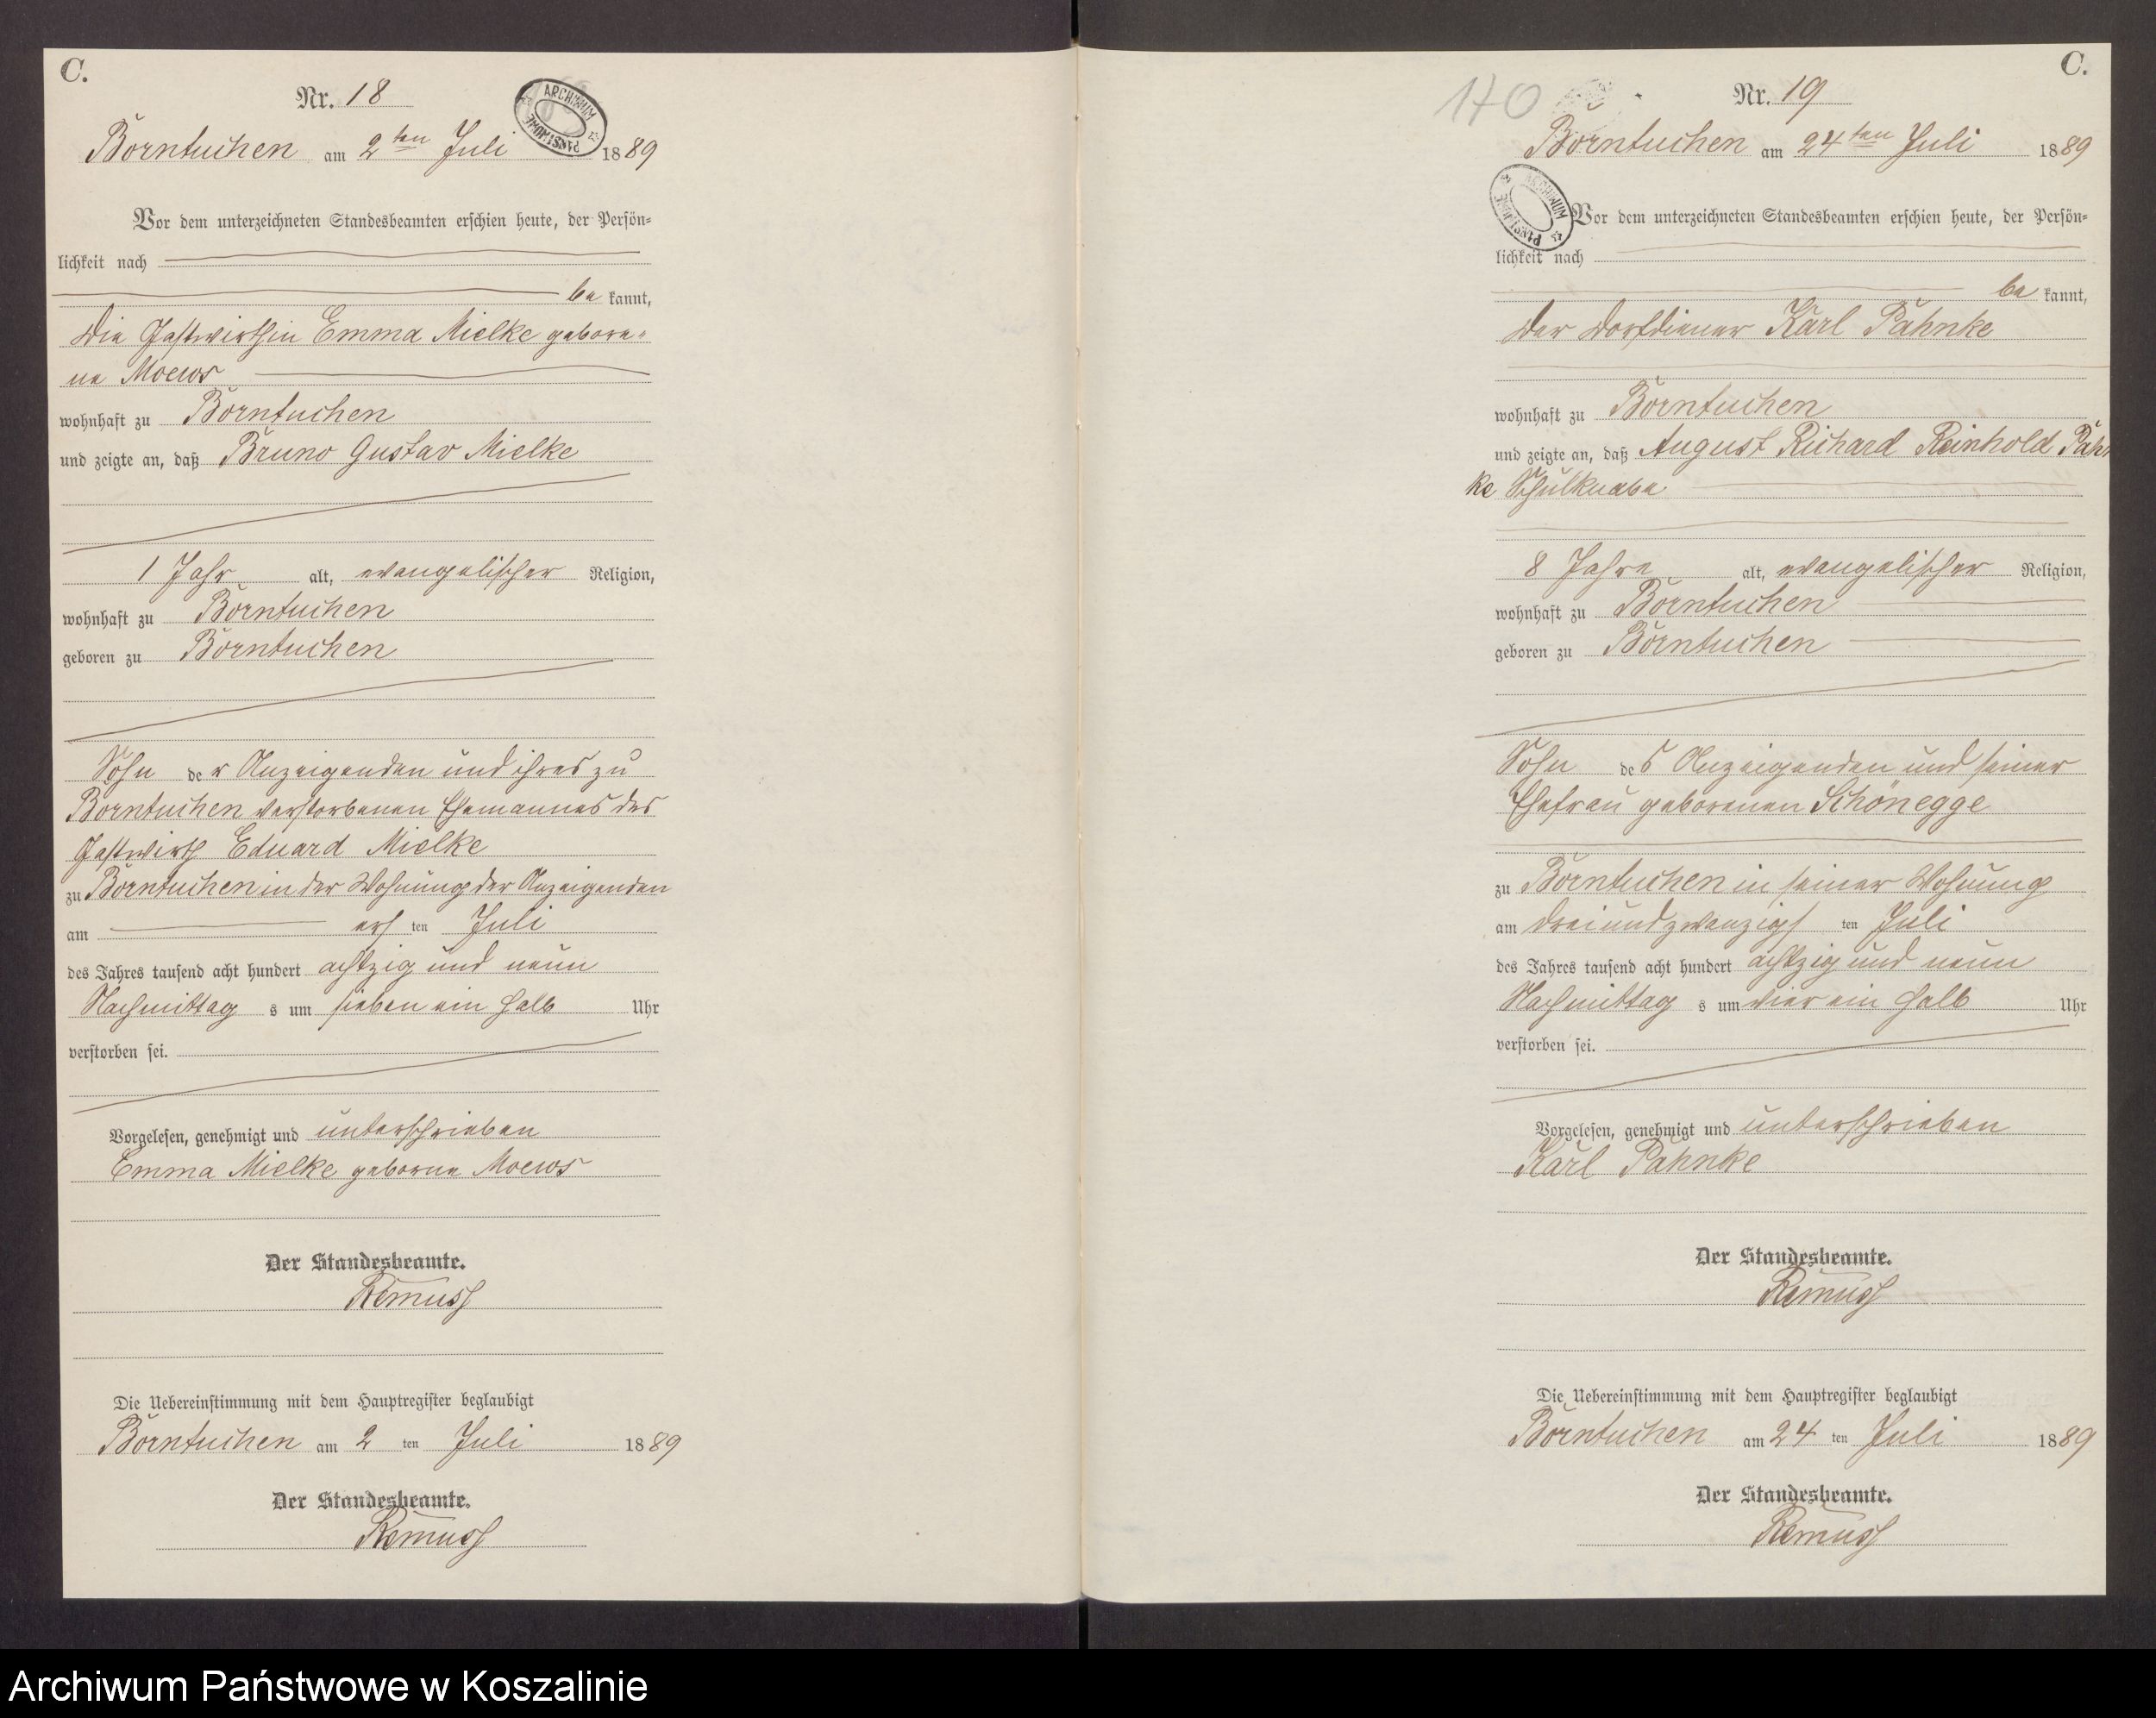 C.
Nr. 18
ARCHIWUM PAŃSTWOWE
Borntuchen am 2ten Juli 1889
Vor dem unterzeichneten Standesbeamten erschien heute, der Persön-
lichkeit nach
be kannt,
die Gastwirthin Emma Mielke gebore-
ne Moews
wohnhaft zu Borntuchen
und zeigte an, daß Bruno Gustav Mielke
1 Jahr alt, evangelischer Religion,
wohnhaft zu Borntuchen
geboren zu Borntuchen
Sohn der Anzeigenden und ihres zu
Borntuchen verstorbenen Ehemannes des
Gastwirth Eduard Mielke
zu Borntuchen in der Wohnung der Anzeigenden
am ersten Juli
des Jahres tausend acht hundert achtzig und neun
Nachmittag s um sieben ein halb Uhr
verstorben sei.
Vorgelesen, genehmigt und unterschrieben
Emma Mielke geborne Moews
Der Standesbeamte.
Remuss
Die Uebereinstimmung mit dem Hauptregister beglaubigt
Borntuchen am 2 ten Juli 1889
Der Standesbeamte.
Remuss
C.
170
Nr. 19
Borntuchen am 24ten Juli 1889
ARCHIWUM PAŃSTWOWE
Vor dem unterzeichneten Standesbeamten erschien heute, der Persön-
lichkeit nach
be kannt,
der Dorfdiener Karl Pahnke
wohnhaft zu Borntuchen
und zeigte an, daß August Richard Reinhold Pahn
ke Schulknabe
8 Jahre alt, evangelischer Religion,
wohnhaft zu Borntuchen
geboren zu Borntuchen
Sohn des Anzeigenden und seiner
Ehefrau geborenen Schönegge
zu Borntuchen in seiner Wohnung
am dreiundzwanzigsten Juli
des Jahres tausend acht hundert achtzig und neun
Nachmittag s um vier ein halb Uhr
verstorben sei.
Vorgelesen, genehmigt und unterschrieben
Karl Pahnke
Der Standesbeamte.
Remuss
Die Uebereinstimmung mit dem Hauptregister beglaubigt
Borntuchen am 24 ten Juli 1889
Der Standesbeamte.
Remuss
Archiwum Państwowe w Koszalinie